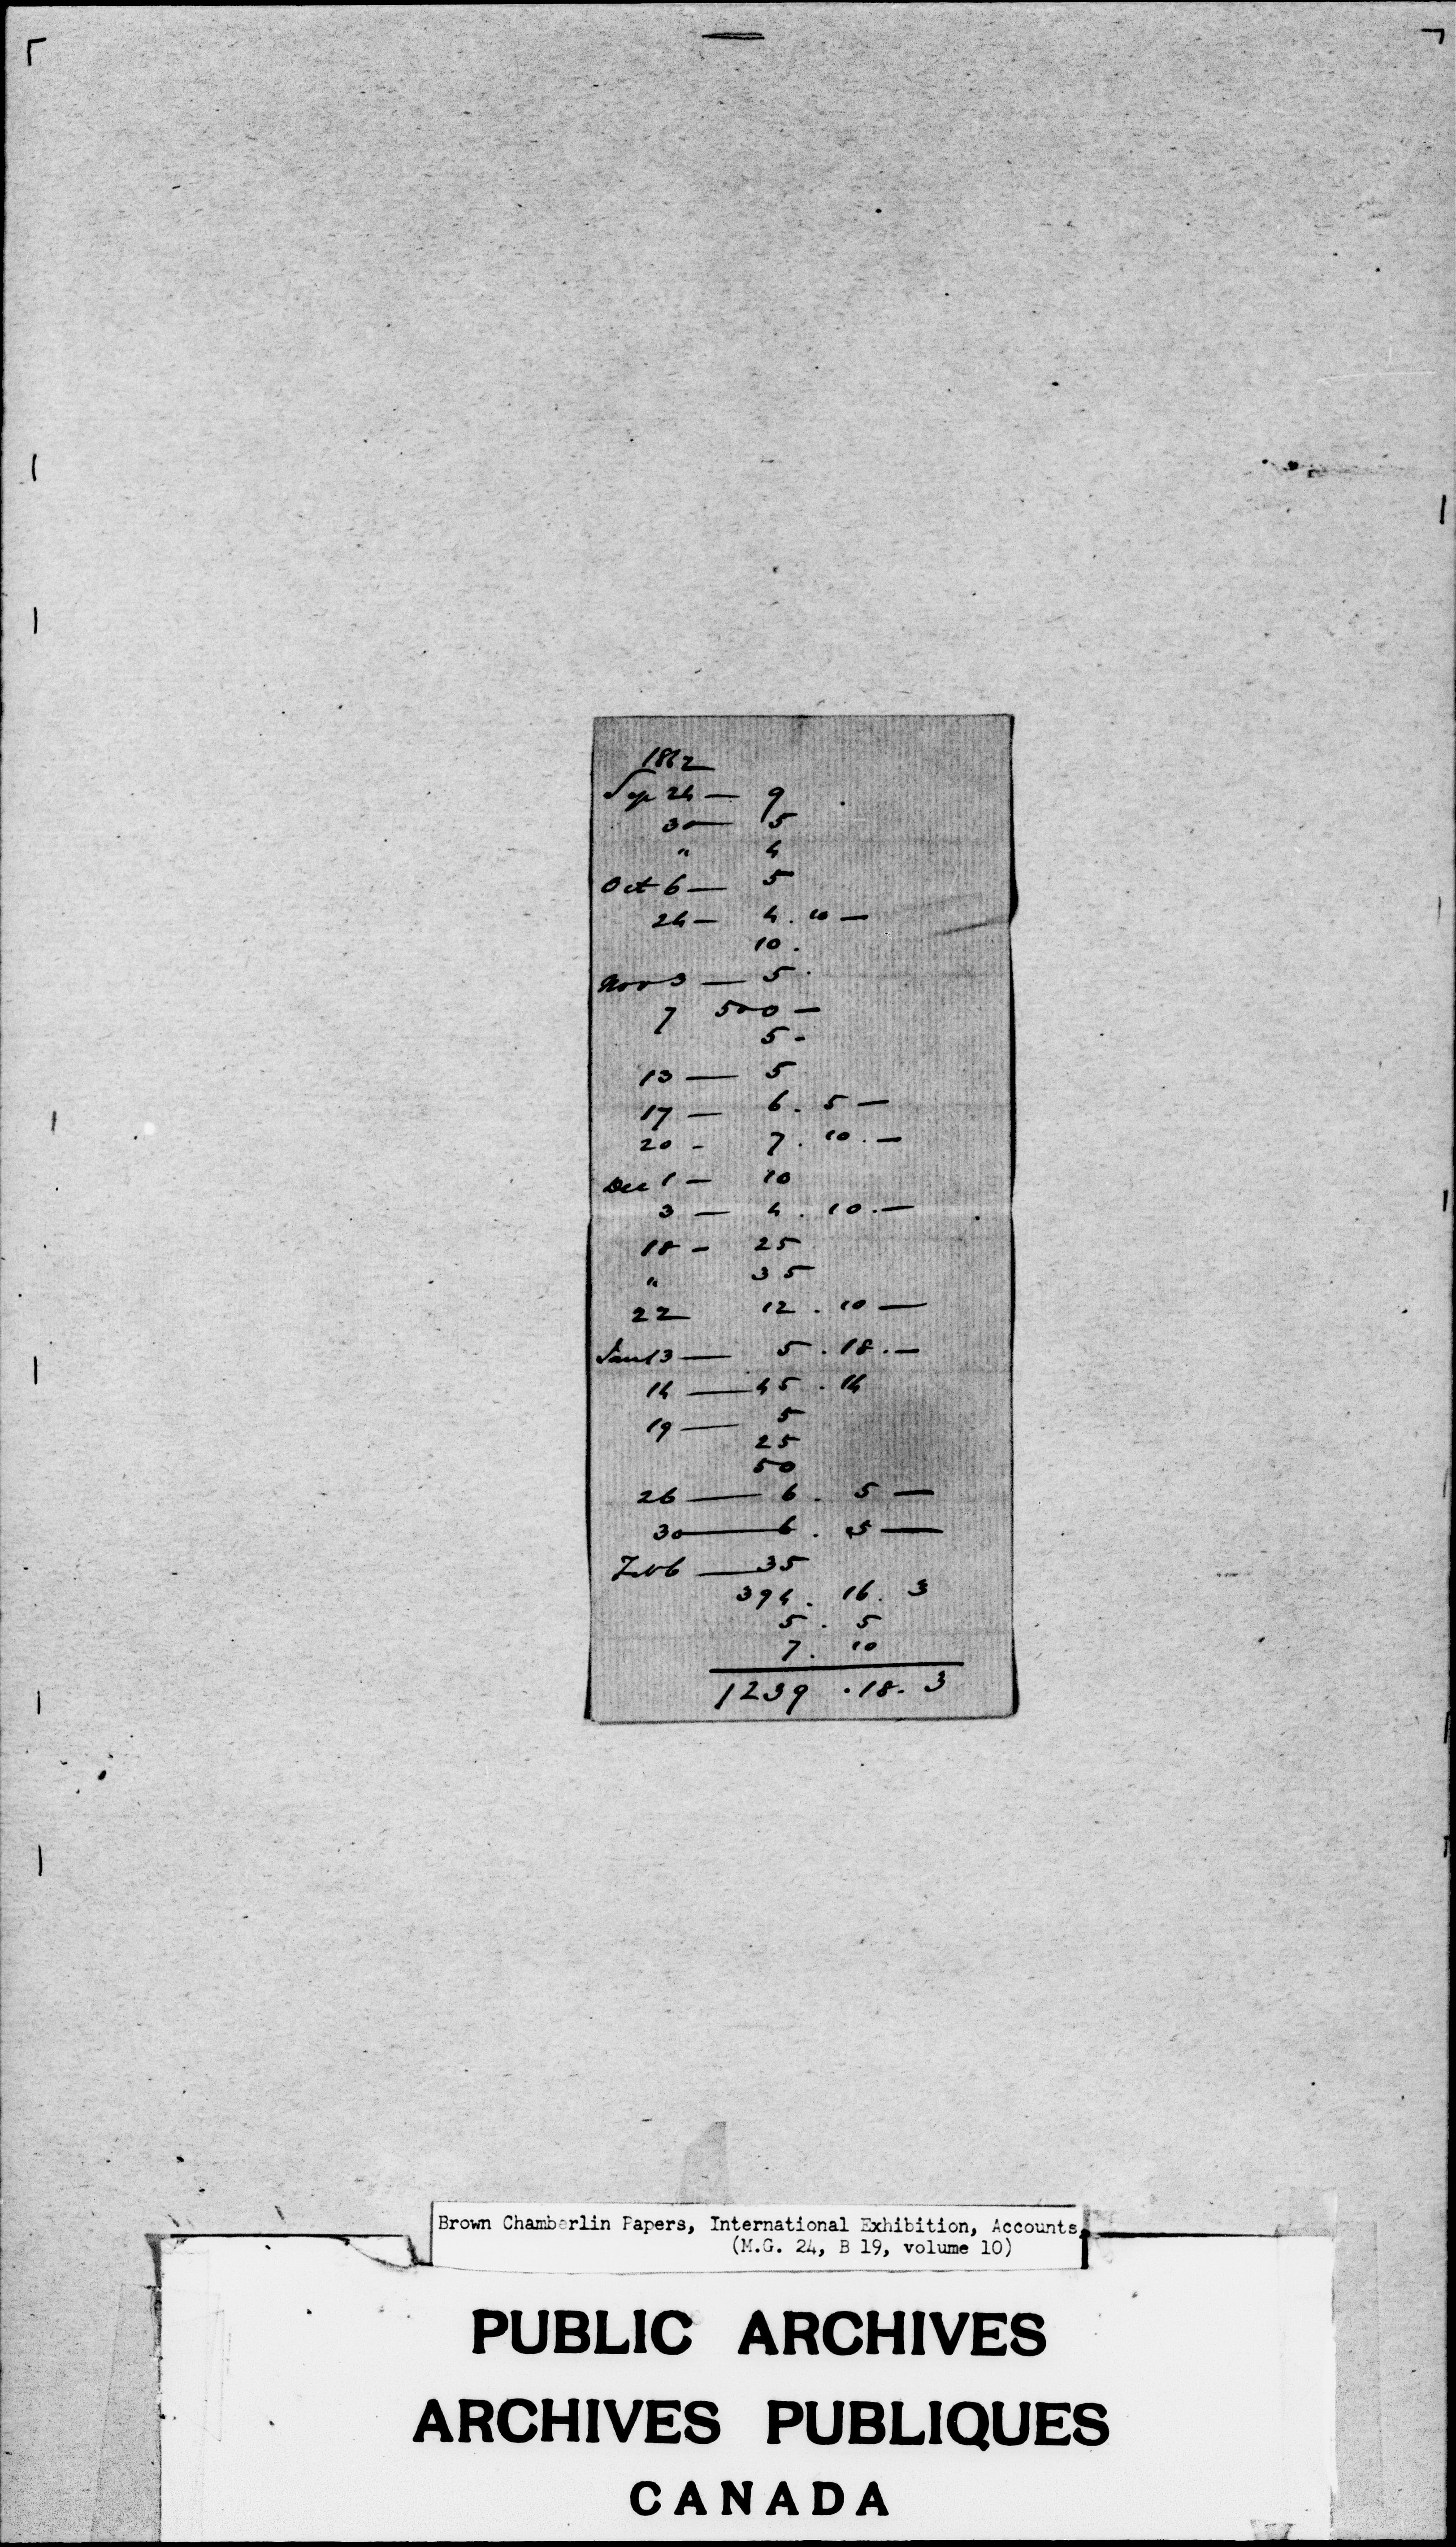 1862
Sep 24 — 9
30 — 5
" 4
Oct 6 — 5
24 — 4 . 10 —
10 .
Nov 3 — 5
7 500 —
5 -
13 — 5
17 — 6 . 5 —
20 - 7 . 10 . —
Dec 1 — 10
3 — 4 . 10 . —
18 - 25
" 35
22 12 . 10 —
Jan 13 — 5 . 18 . —
14 — 45 . 14
19 — 5
25
50
26 — 6 . 5 —
30 — 6 . 5 —
Feb 6 — 35
394 . 16 . 3
5 . 5
7 . 10
1239 . 18 . 3
Brown Chamberlin Papers, International Exhibition, Accounts,
(M.G. 24, B 19, volume 10)
PUBLIC ARCHIVES
ARCHIVES PUBLIQUES
CANADA